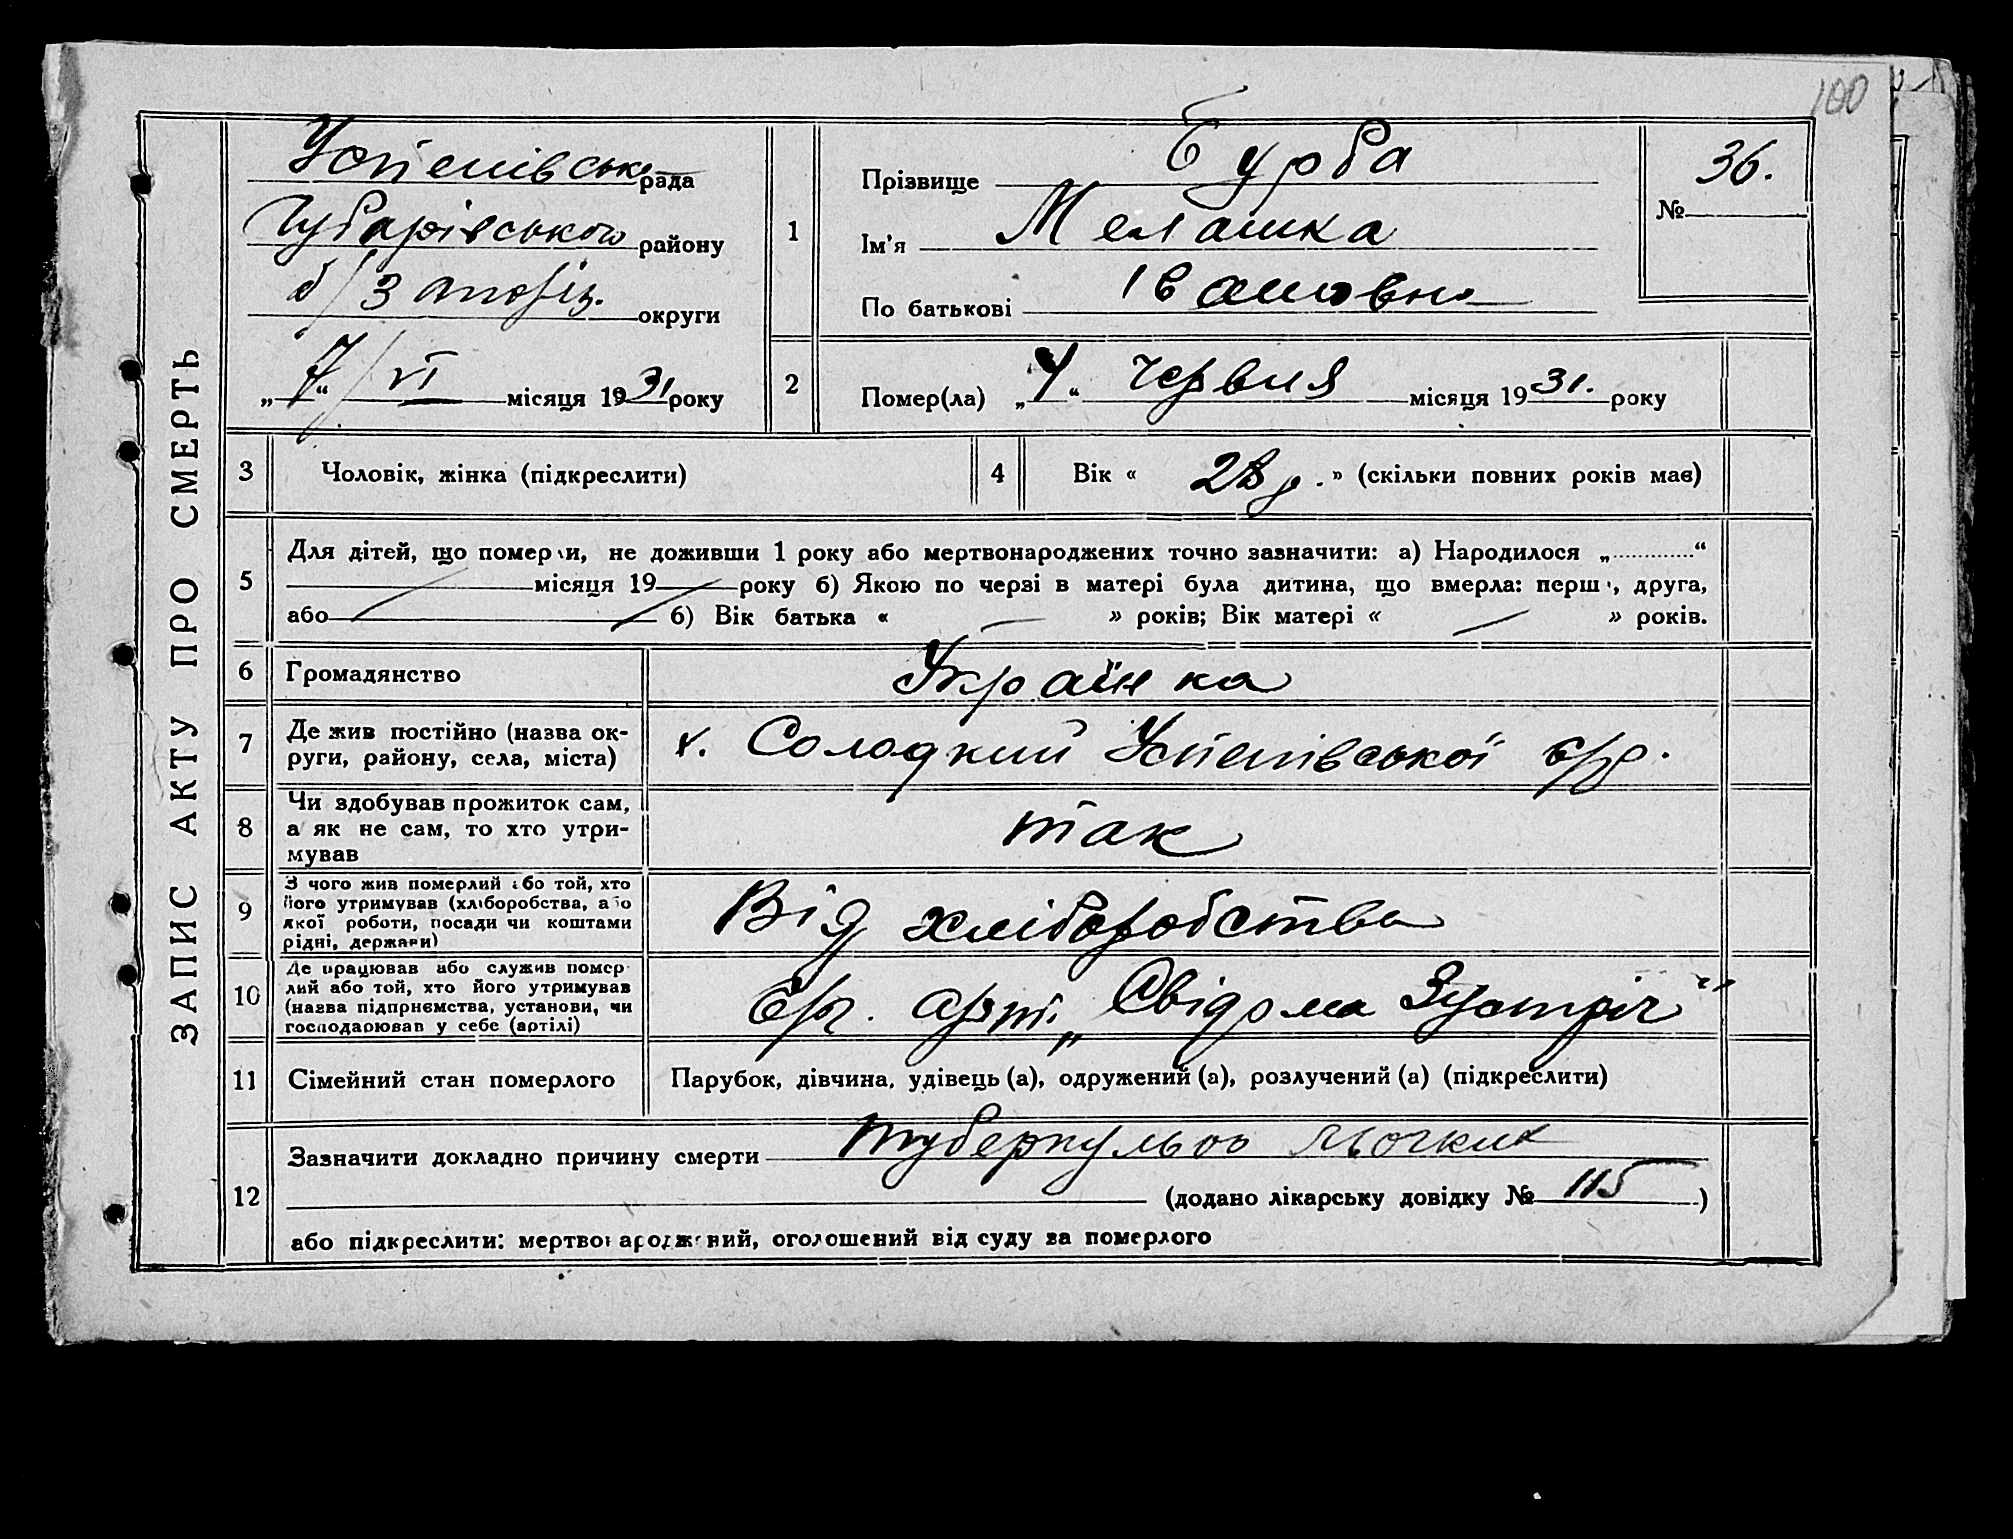 100
ЗАПИС АКТУ ПРО СМЕРТЬ
Успенівська рада
району
б/Запоріз. округи
„7“ VI місяця 1931 року
1
Прізвище Бурба
Ім'я Мелашка
По батькові Івановна
№ 36.
2
Помер(ла) „4“ червня місяця 1931. року
3 Чоловік, жінка (підкреслити)
4 Вік « 28 р. » (скільки повних років має)
5
Для дітей, що померли, не доживши 1 року або мертвонароджених точно зазначити: а) Народилося „............“
місяця 19 року б) Якою по черзі в матері була дитина, що вмерла: перша, друга,
або б) Вік батька « » років; Вік матері « » років.
6 Громадянство Українка
7 Де жив постійно (назва ок-
руги, району, села, міста) х. Солодкий Успенівської с/р.
8 Чи здобував прожиток сам,
а як не сам, то хто утри-
мував
так
9 З чого жив померлий або той, хто
його утримував (хліборобства, або
якої роботи, посади чи коштами
рідні, держави)
Від хліборобства
10 Де працював або служив помер
лий або той, хто його утримував
(назва підприємства, установи, чи
господарював у себе (артілі)
С/г. арт. „Свідома Зустріч“
11 Сімейний стан померлого Парубок, дівчина, удівець (а), одружений (а), розлучений (а) (підкреслити)
12
Зазначити докладно причину смерти туберкульоз
(додано лікарську довідку № 115)
або підкреслити: мертвонароджений, оголошений від суду за померлого